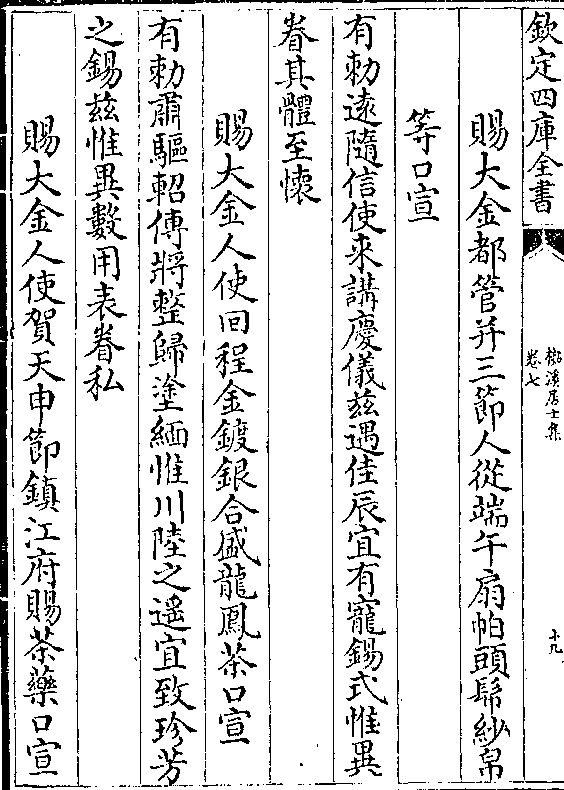 欽定四庫全書
檆溪居士集
卷七
十九
賜大金都管并三節人從端午扇帕頭𢄼紗帛
等口宣
有勅遠隨信使來講慶儀兹遇佳辰宜有寵錫式惟異
眷其體至懷
賜大金人使回程金鍍銀合盛龍鳳茶口宣
有勅肅驅軺傳將整歸塗緬惟川陸之遥宜致珍芳
之錫兹惟異數用表眷私
賜大金人使賀天申節鎮江府賜茶藥口宣